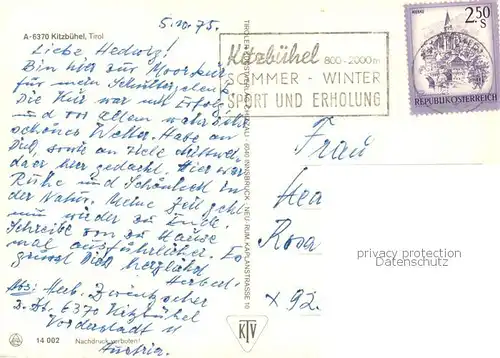 5.10.75.
A-6370 Kitzbühel, Tirol
Liebe Hedwig!
Bin hier zur Moorkur
für mein Schulter
Die Kur war mit Erfolg
und vor allem
schönes Wetter. Habe an
Dich, sowie an
hier gedacht. Hier war
Ruhe und Schönheit in
der Natur. Meine Zeit geht
nun wieder zu Ende.
Schreibe von zu Hause
mal ausführlicher. Es
grüsst Dich herzlichst
Abs: Herb.
z. Zt. 6370 Kitzbühel
Vorderstadt 11
Austria.
14 002 Nachdruck verboten!
TIROLER KUNSTVERLAG 6040 INNSBRUCK - NEU-RUM, KAPLANSTRASSE 10
KTV
Kitzbühel 800-2000m
SOMMER - WINTER
SPORT UND ERHOLUNG
2.50 S
REPUBLIK ÖSTERREICH
Frau
Hea
Rosa
x 92.
privacy protection
Datenschutz